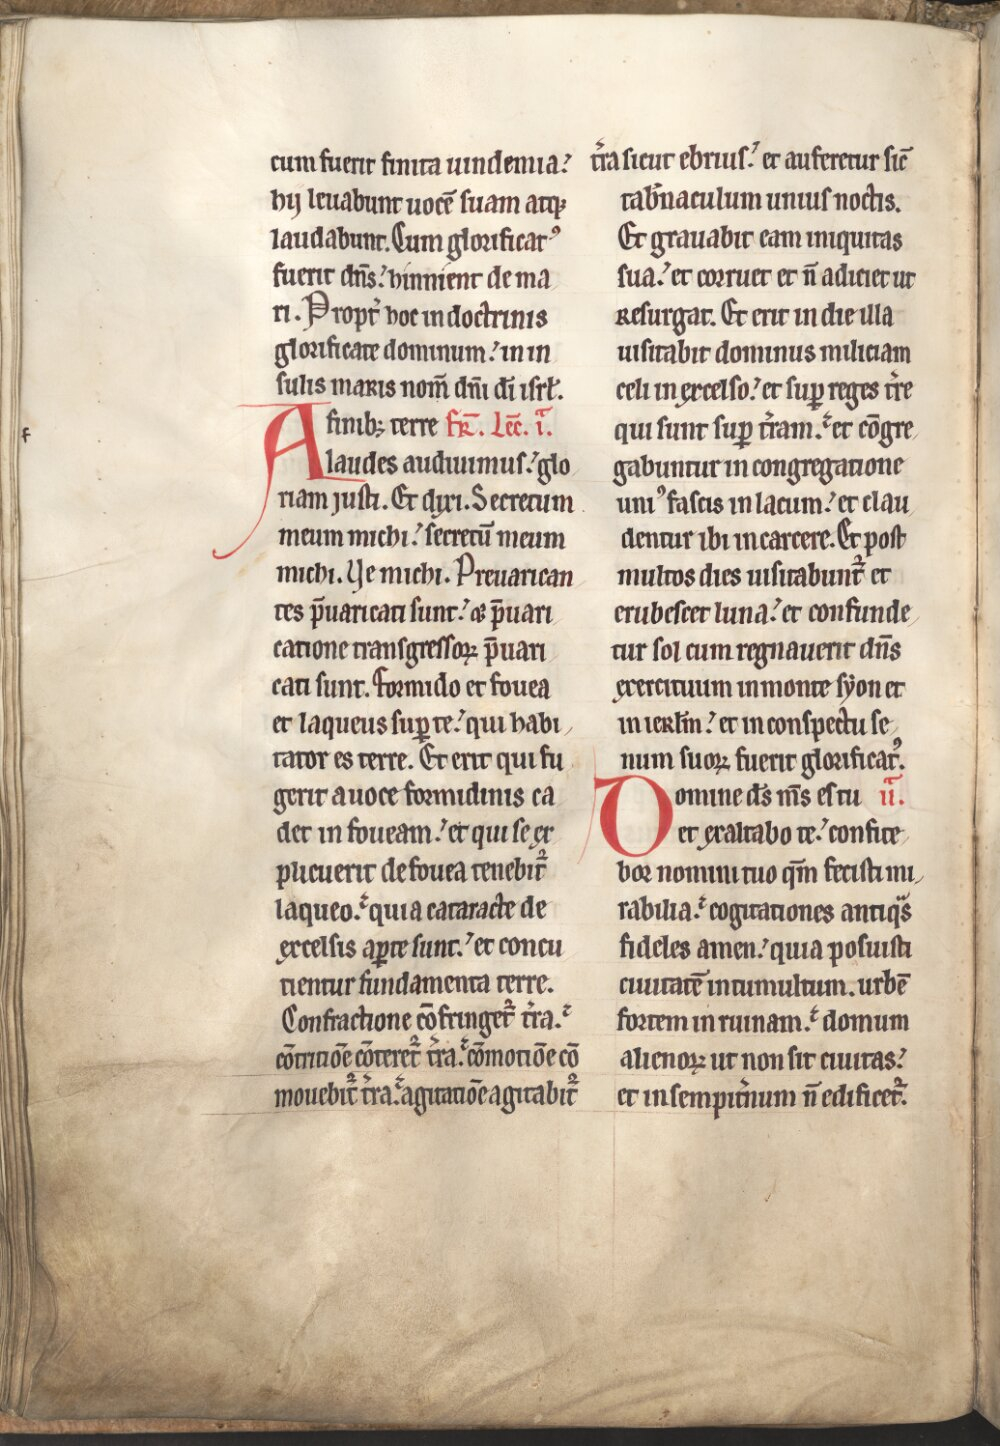 cum fuerit finita uindemia.
hij leuabunt uocē suam atq;
laudabunt. Cum glorificatꝰ
fuerit dn̄s. hinnient de ma
ri. Propt̉ hoc in doctrinis
glorificate dominum. in in
sulis maris nom̄ dn̄i dī isrł.
A finib; terre fr̄. Lēc. ı̄.
laudes audiuimus. glo
riam justi. Et dixi. Secretum
meum michi. secretū meum
michi. Ue michi. Preuarican
tes p̄uaricati sunt. ⁊ p̄uari
catione transgressoꝝ p̄uari
cati sunt. Formido et fouea
et laqueus suꝑ te. qui habi
tator es terre. Et erit qui fu
gerit a uoce formidinis ca
det in foueam. et qui se ex
plicuerit de fouea tenebit᷑
laqueo. quia cataracte de
excelsis aꝑte sunt. et concu
tientur fundamenta terre.
Confractione cōfringet᷑ t̉ra.
cōtritiōe cōteret᷑ t̉ra. cōmotiōe cō
mouebit᷑ t̉ra. agitatiōe agitabit᷑
t̉ra sicut ebrius. et auferetur sic̄
tab̉naculum unius noctis.
Et grauabit eam iniquitas
sua. et corruet et n̄ adiciet ut
resurgat. Et erit in die illa
uisitabit dominus miliciam
celi in excelso. et suꝑ reges t̉re
qui sunt suꝑ t̉ram. et cōgre
gabuntur in congregatione
uniꝰ fascis in lacum. et clau
dentur ibi in carcere. Et post
multos dies uisitabunt᷑ et
erubescet luna. et confunde
tur sol cum regnauerit dn̄s
exercituum in monte syon et
in ierłm. et in conspectu se
num suoꝝ fuerit glorificatꝰ.
Domine ds̄ ms̄ es tu ıı̄.
et exaltabo te. confite
bor nomini tuo qm̄ fecisti mi
rabilia. cogitationes antiqᷓs
fideles amen. quia posuisti
ciuitatē in tumultum. urbē
fortem in ruinam. domum
alienoꝝ ut non sit ciuitas.
et in sempit̉num n̄ edificet᷑.
f